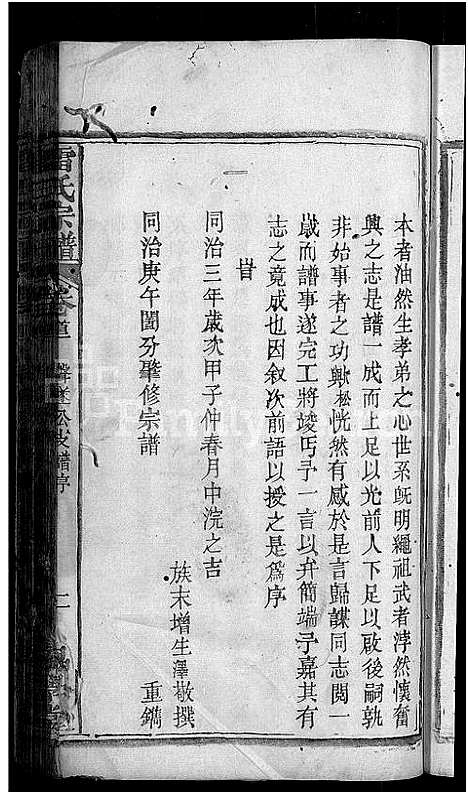 本者油然生孝弟之心世系旣明繩祖武者浡然懷奮
興之志是譜一成而上足以光前人下足以啟後嗣孰
非始事者之功歟松恍然有感於是言歸謀同志閱一
歲而譜事遂完工將竣丐予一言以弁簡端予嘉其有
志之竟成也因叙次前語以授之是爲序
旹
同治三年歲次甲子仲春月中浣之吉
族末增生澤敬撰
同治庚午闔分肇修宗譜
重鐫
雷氏宗譜
卷首
公支譜序
二